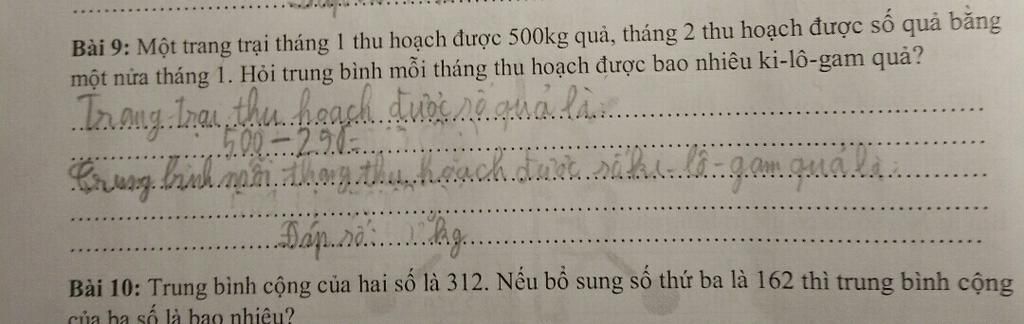 Bài 9: Một trang trại tháng 1 thu hoạch được 500kg quả, tháng 2 thu hoạch được số quả bằng
một nửa tháng 1. Hỏi trung bình mỗi tháng thu hoạch được bao nhiêu ki-lô-gam quả?
Trang trại thu hoạch được số quả là:
500 - 250=
Trung bình mỗi tháng thu hoạch được số ki-lô-gam quả là:
Đáp số: kg
Bài 10: Trung bình cộng của hai số là 312. Nếu bổ sung số thứ ba là 162 thì trung bình cộng
của ba số là bao nhiêu?